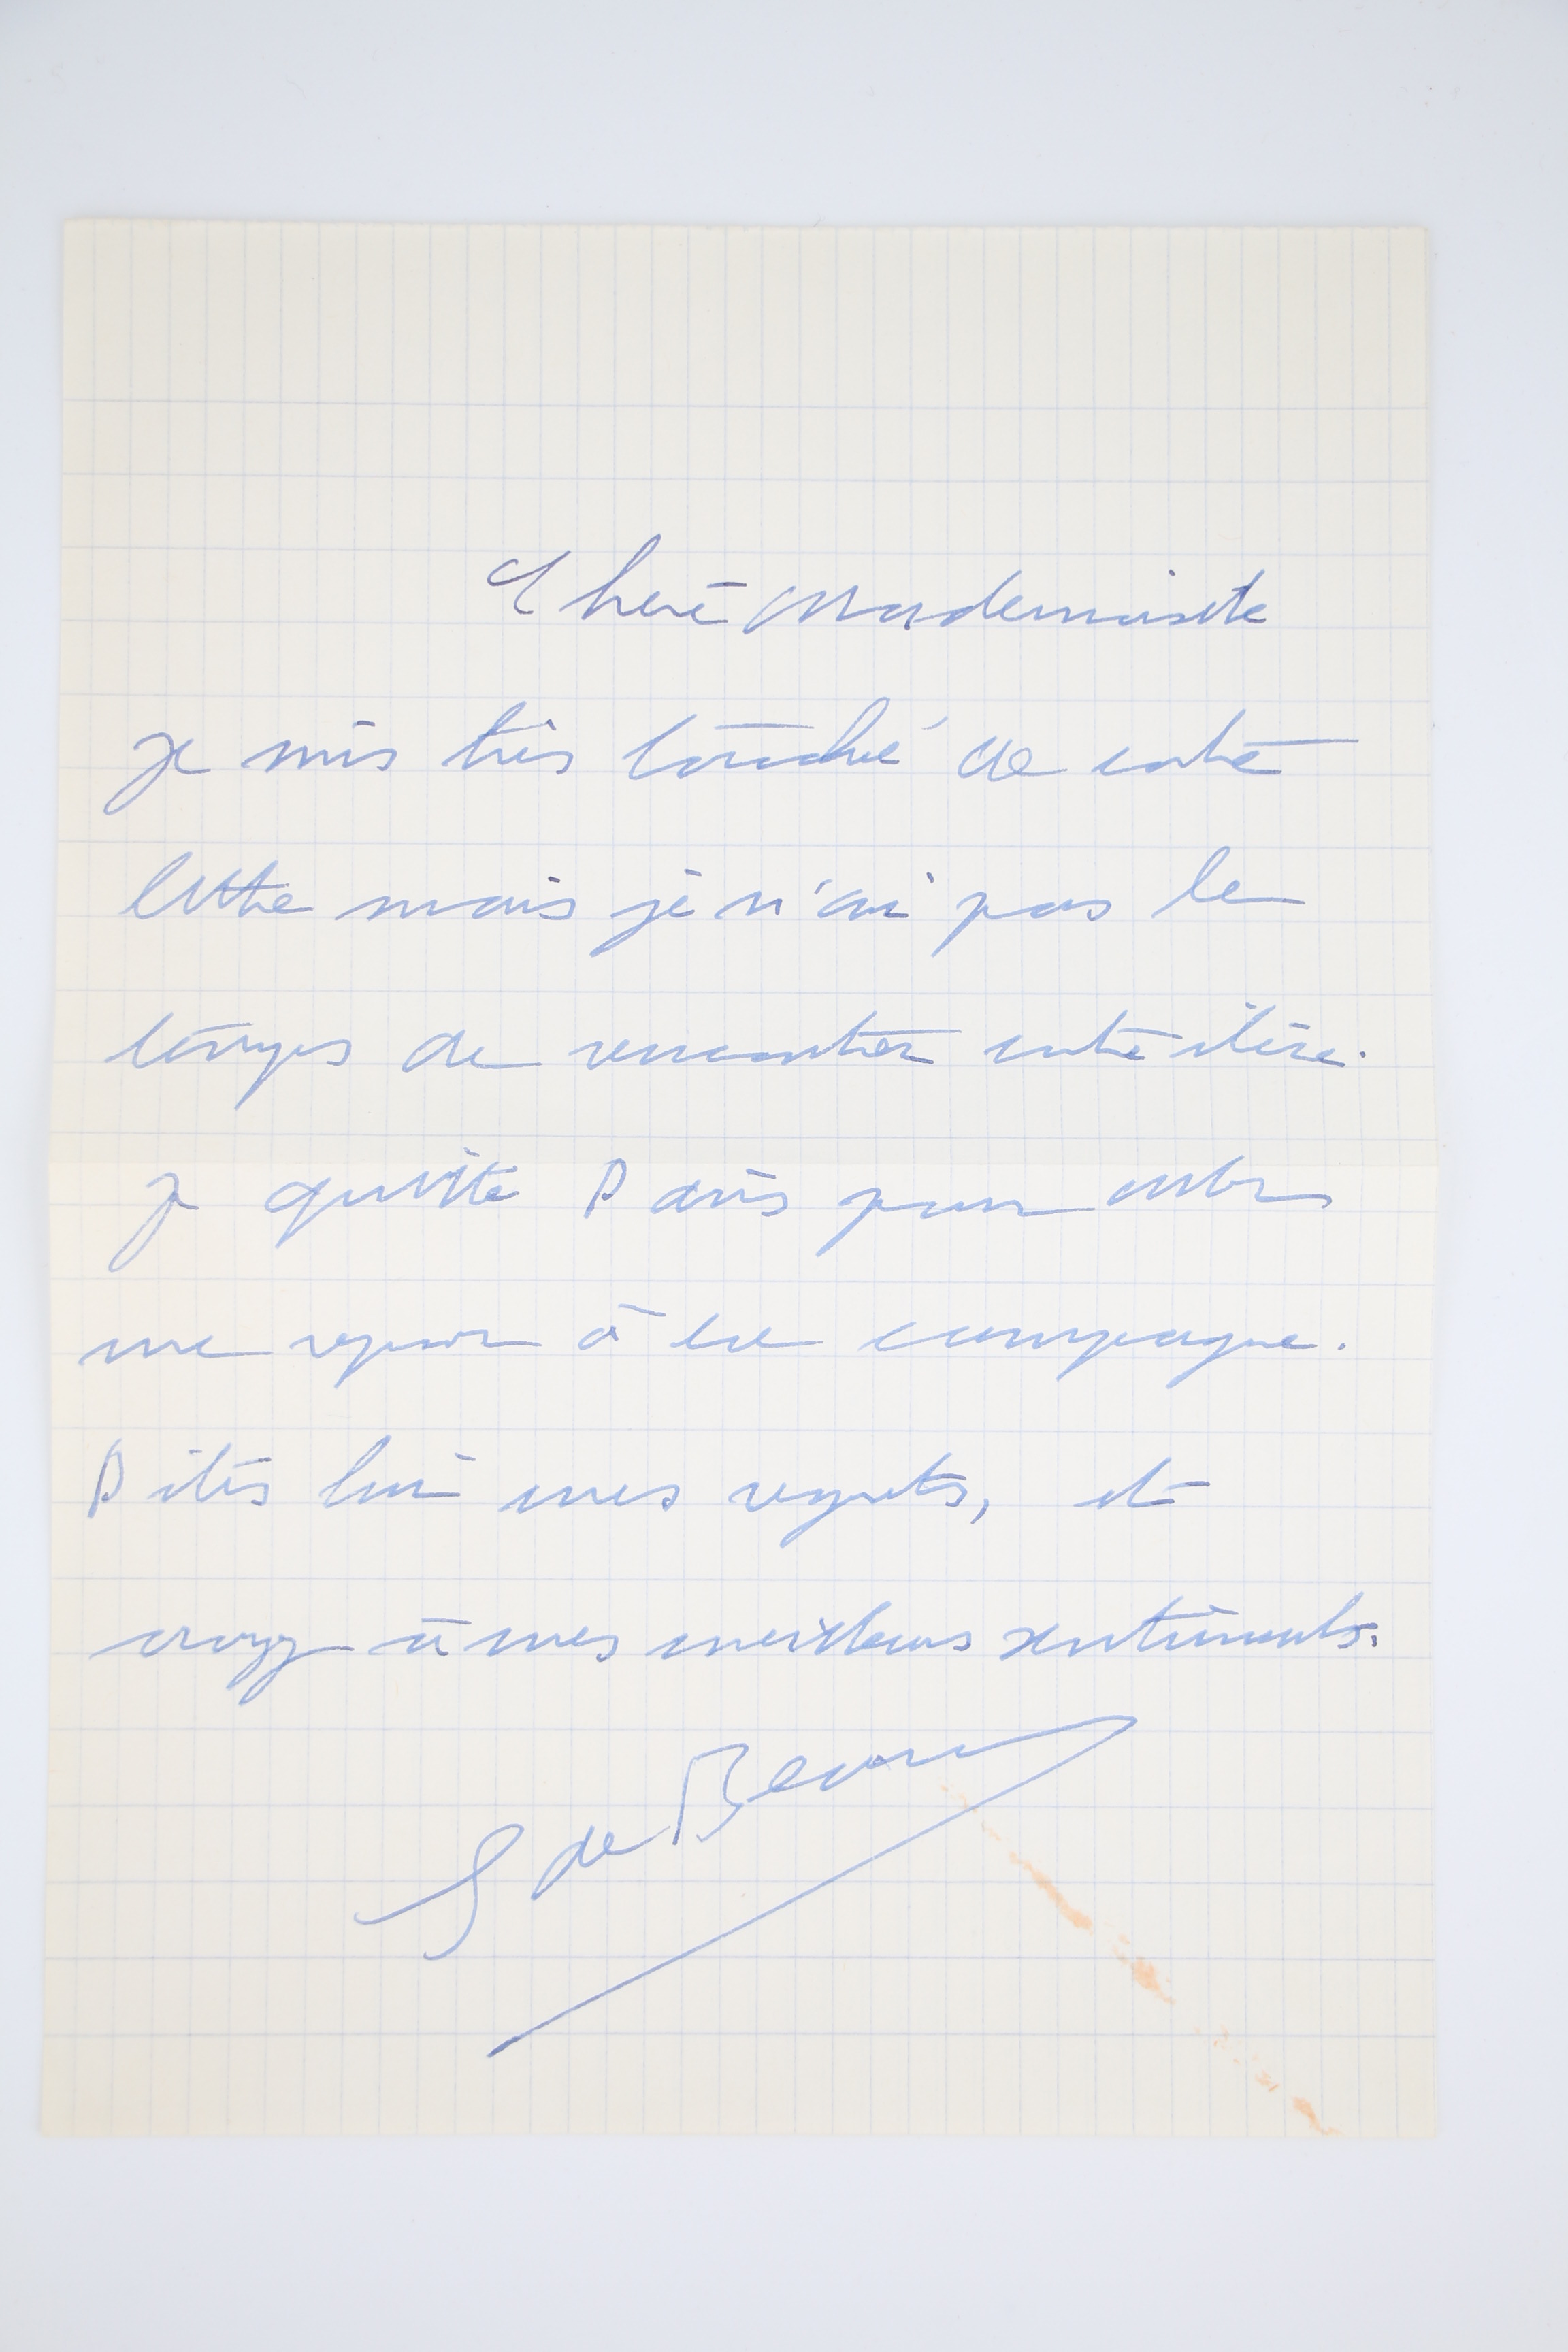 Chère Mademoiselle
je suis très touchée de votre
lettre mais je n'ai pas le
temps de rencontrer votre élève.
je quitte Paris pour aller
me reposer à la campagne.
Dites lui mes regrets, et
croyez à mes meilleurs sentiments.
S de Beauvoir